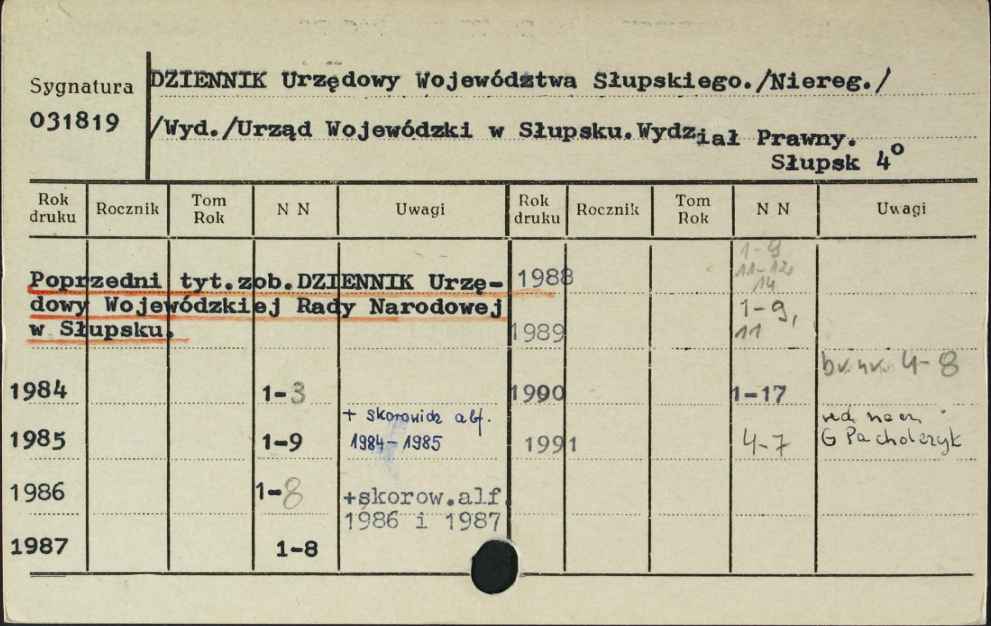 Sygnatura
031819
DZIENNIK Urzędowy Województwa Słupskiego./Niereg./
/Wyd./Urząd Wojewódzki w Słupsku.Wydział Prawny.
Słupsk 4°
Rok druku Rocznik Tom Rok N N Uwagi Rok druku Rocznik Tom Rok N N Uwagi
Poprzedni tyt.zob.DZIENNIK Urzę-
dowy Wojewódzkiej Rady Narodowej
w Słupsku.
1984 1-3
1985 1-9 + skorowidz alf. 1984-1985
1986 1-8 +skorow.alf. 1986 i 1987
1987 1-8
1988 1-9 11-12, 14
1989 1-9, 11
1990 1-17 4-8
1991 4-7 G Pacholczyk